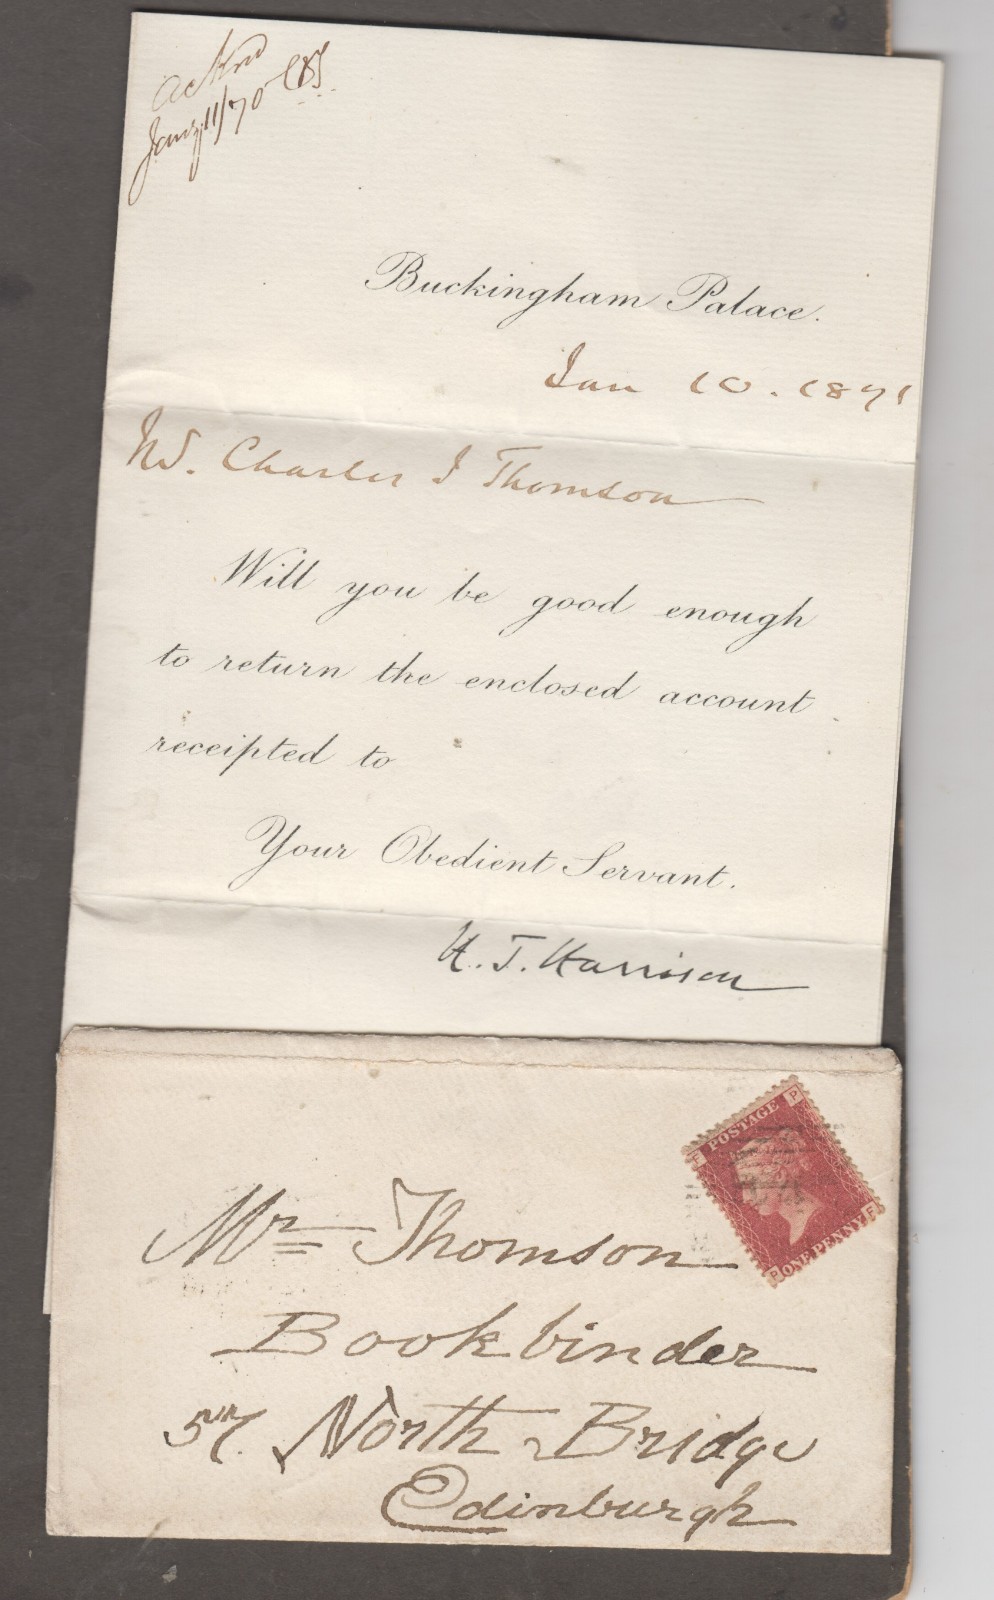 Acknd
Jany 11/70
Buckingham Palace.
Jan 10. 1871
Charles J Thomson
Will you be good enough
to return the enclosed account
receipted to
Your Obedient Servant.
H. J. Harrison
F POSTAGE P
P ONE PENNY F
Mr Thomson
Bookbinder
57. North Bridge
Edinburgh